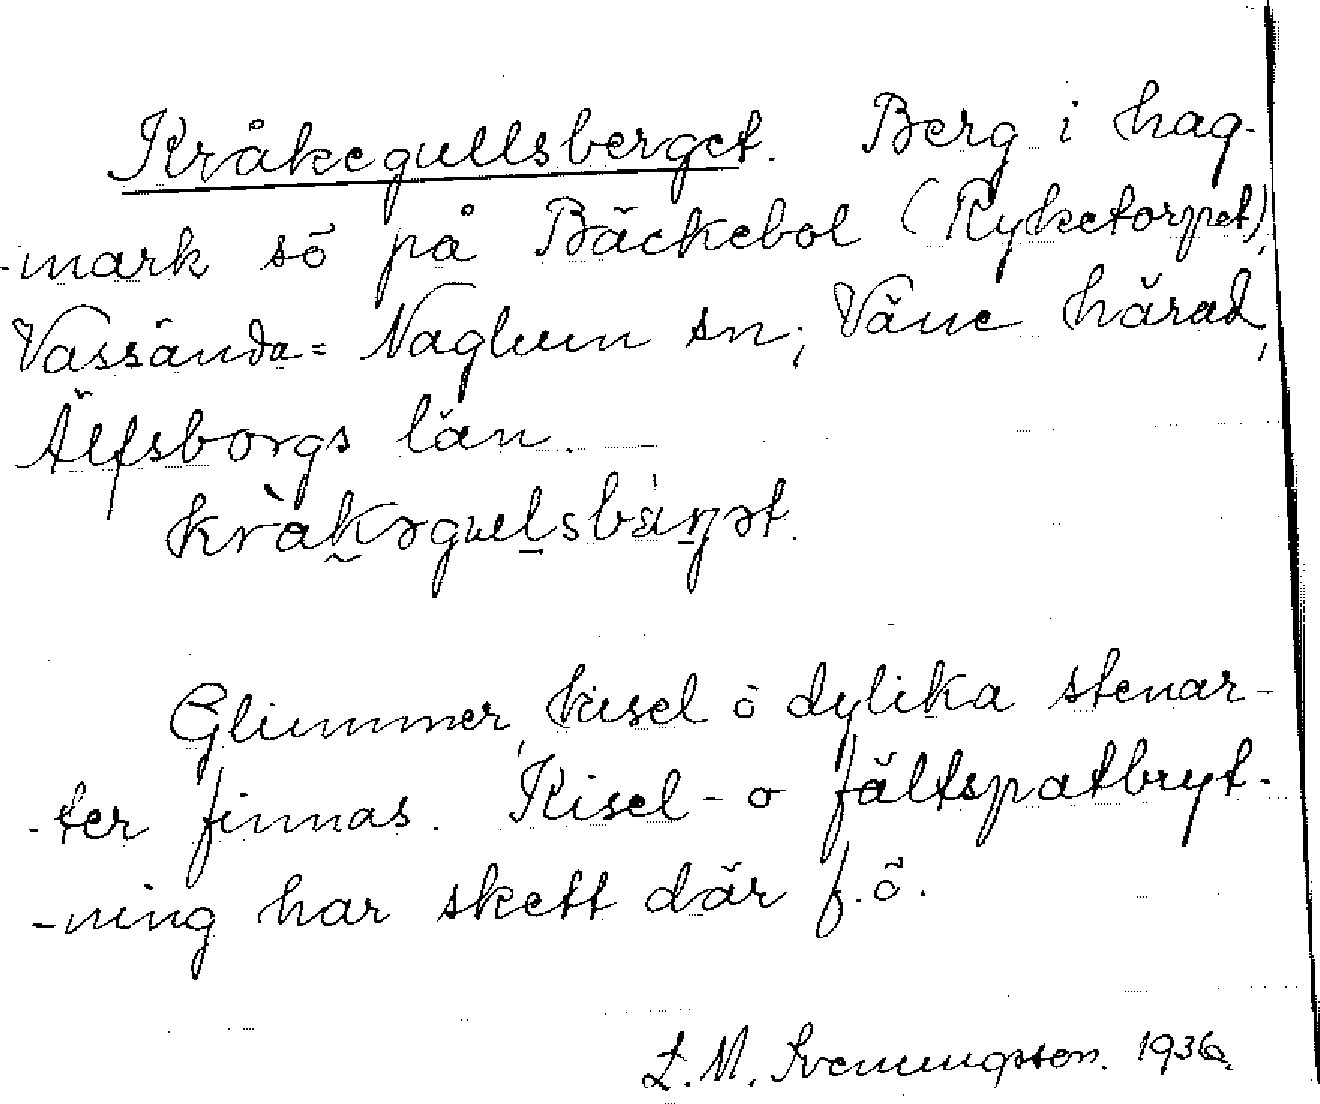 Kråkegullsberget. Berg i hag-
-mark sö på Bäckebol (Ryketorpet),
Vassända=Naglum sn; Väne härad,
Älfsborgs län. —
Glimmer, kisel ö dylika stenar-
-ter finnas. Kisel- o fältspatbryt-
-ning har skett där f.ö.
L. M. Svenungsson. 1936.